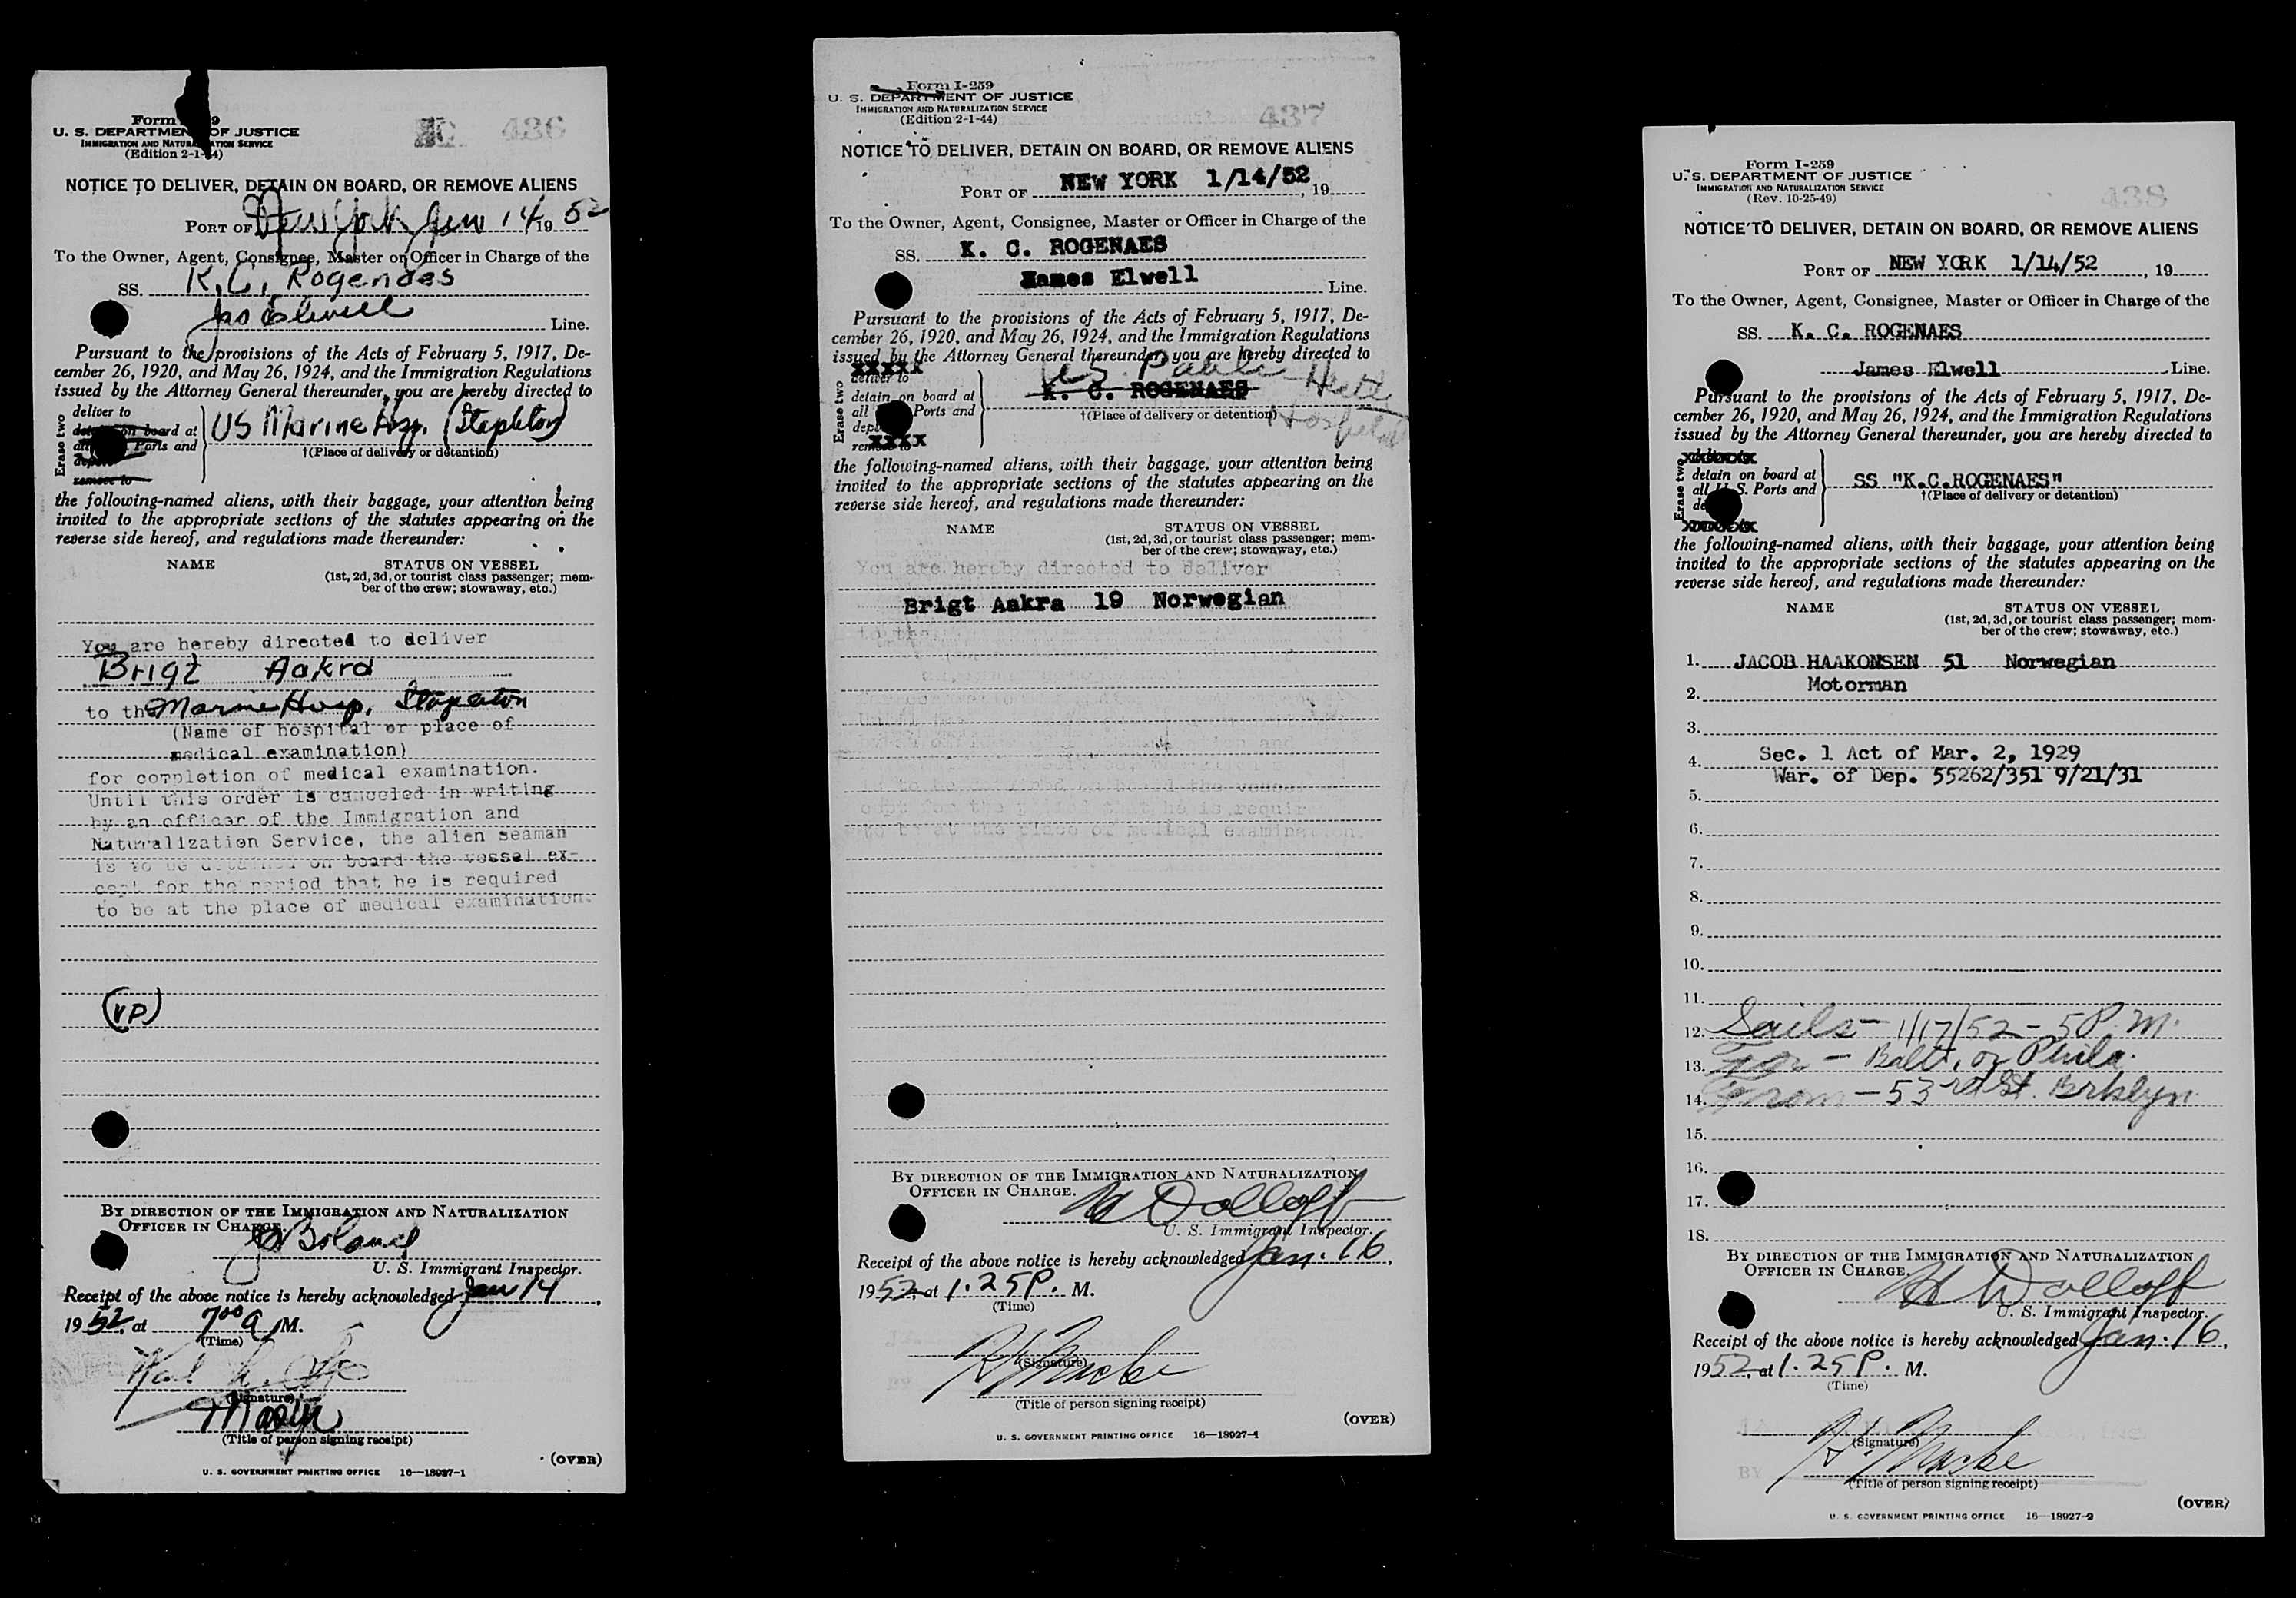 Form 9
U. S. DEPARTMENT OF JUSTICE
IMMIGRATION AND NATURALIZATION SERVICE
(Edition 2-1-44)
436
NOTICE TO DELIVER, DETAIN ON BOARD, OR REMOVE ALIENS
PORT OF New York Jan 14, 19 52
To the Owner, Agent, Consignee, Master or Officer in Charge of the
SS. K. C. Rogenaes
Jas Elwell Line.
Pursuant to the provisions of the Acts of February 5, 1917, De-
cember 26, 1920, and May 26, 1924, and the Immigration Regulations
issued by the Attorney General thereunder, you are hereby directed to
Erase two
deliver to
detain on board at
all Ports and
deport
remove to
US Marine Hosp. (Stapleton)
†(Place of delivery or detention)
the following-named aliens, with their baggage, your attention being
invited to the appropriate sections of the statutes appearing on the
reverse side hereof, and regulations made thereunder:
NAME STATUS ON VESSEL
(1st, 2d, 3d, or tourist class passenger; mem-
ber of the crew; stowaway, etc.)
You are hereby directed to deliver
Brigt Aakra
to the Marine Hosp. Stapleton
(Name of hospital or place of
medical examination)
for completion of medical examination.
Until this order is canceled in writing
by an officer of the Immigration and
Naturalization Service, the alien seaman
is to be detained on board the vessel ex-
cept for the period that he is required
to be at the place of medical examination.
(VP)
BY DIRECTION OF THE IMMIGRATION AND NATURALIZATION
OFFICER IN CHARGE.
Boland
U. S. Immigrant Inspector.
Receipt of the above notice is hereby acknowledged Jan 14,
19 52, at 7 00 a M.
(Time)
(Signature)
Master
(Title of person signing receipt)
(OVER)
U. S. GOVERNMENT PRINTING OFFICE 16—18927-1
Form I-259
U. S. DEPARTMENT OF JUSTICE
IMMIGRATION AND NATURALIZATION SERVICE
(Edition 2-1-44)
437
NOTICE TO DELIVER, DETAIN ON BOARD, OR REMOVE ALIENS
PORT OF NEW YORK 1/14/52, 19
To the Owner, Agent, Consignee, Master or Officer in Charge of the
SS. K. C. ROGENAES
James Elwell Line.
Pursuant to the provisions of the Acts of February 5, 1917, De-
cember 26, 1920, and May 26, 1924, and the Immigration Regulations
issued by the Attorney General thereunder, you are hereby directed to
Erase two
deliver to
detain on board at
all Ports and
remove to
U.S. Public Health
K. C. ROGENAES
†(Place of delivery or detention)
Hospital
the following-named aliens, with their baggage, your attention being
invited to the appropriate sections of the statutes appearing on the
reverse side hereof, and regulations made thereunder:
NAME STATUS ON VESSEL
(1st, 2d, 3d, or tourist class passenger; mem-
ber of the crew; stowaway, etc.)
You are hereby directed to deliver
Brigt Aakra 19 Norwegian
to the
cept for the period that he is requir
to be at the place of medical examination.
BY DIRECTION OF THE IMMIGRATION AND NATURALIZATION
OFFICER IN CHARGE.
H Dolloff
U. S. Immigrant Inspector.
Receipt of the above notice is hereby acknowledged Jan. 16,
19 52, at 1.25 P. M.
(Time)
(Signature)
(Title of person signing receipt)
(OVER)
U. S. GOVERNMENT PRINTING OFFICE 16—18927-1
Form I-259
U. S. DEPARTMENT OF JUSTICE
IMMIGRATION AND NATURALIZATION SERVICE
(Rev. 10-25-49)
438
NOTICE TO DELIVER, DETAIN ON BOARD, OR REMOVE ALIENS
PORT OF NEW YORK 1/14/52, 19
To the Owner, Agent, Consignee, Master or Officer in Charge of the
SS. K. C. ROGENAES
James Elwell Line.
Pursuant to the provisions of the Acts of February 5, 1917, De-
cember 26, 1920, and May 26, 1924, and the Immigration Regulations
issued by the Attorney General thereunder, you are hereby directed to
Erase two
detain on board at
all U. S. Ports and
SS "K.C.ROGENAES"
†(Place of delivery or detention)
the following-named aliens, with their baggage, your attention being
invited to the appropriate sections of the statutes appearing on the
reverse side hereof, and regulations made thereunder:
NAME STATUS ON VESSEL
(1st, 2d, 3d, or tourist class passenger; mem-
ber of the crew; stowaway, etc.)
1. JACOB HAAKONSEN 51 Norwegian
2. Motorman
3.
4. Sec. 1 Act of Mar. 2, 1929
War. of Dep. 55262/351 9/21/31
5.
6.
7.
8.
9.
10.
11.
12. Sails - 1/17/52 - 5 P.M.
13. For - Balt. or Phila.
14. From - 53rd St. Brklyn
15.
16.
17.
18.
BY DIRECTION OF THE IMMIGRATION AND NATURALIZATION
OFFICER IN CHARGE.
H Dolloff
U. S. Immigrant Inspector.
Receipt of the above notice is hereby acknowledged Jan. 16,
19 52, at 1.25 P. M.
(Time)
(Signature)
BY
(Title of person signing receipt)
(OVER)
U. S. GOVERNMENT PRINTING OFFICE 16—18927-2